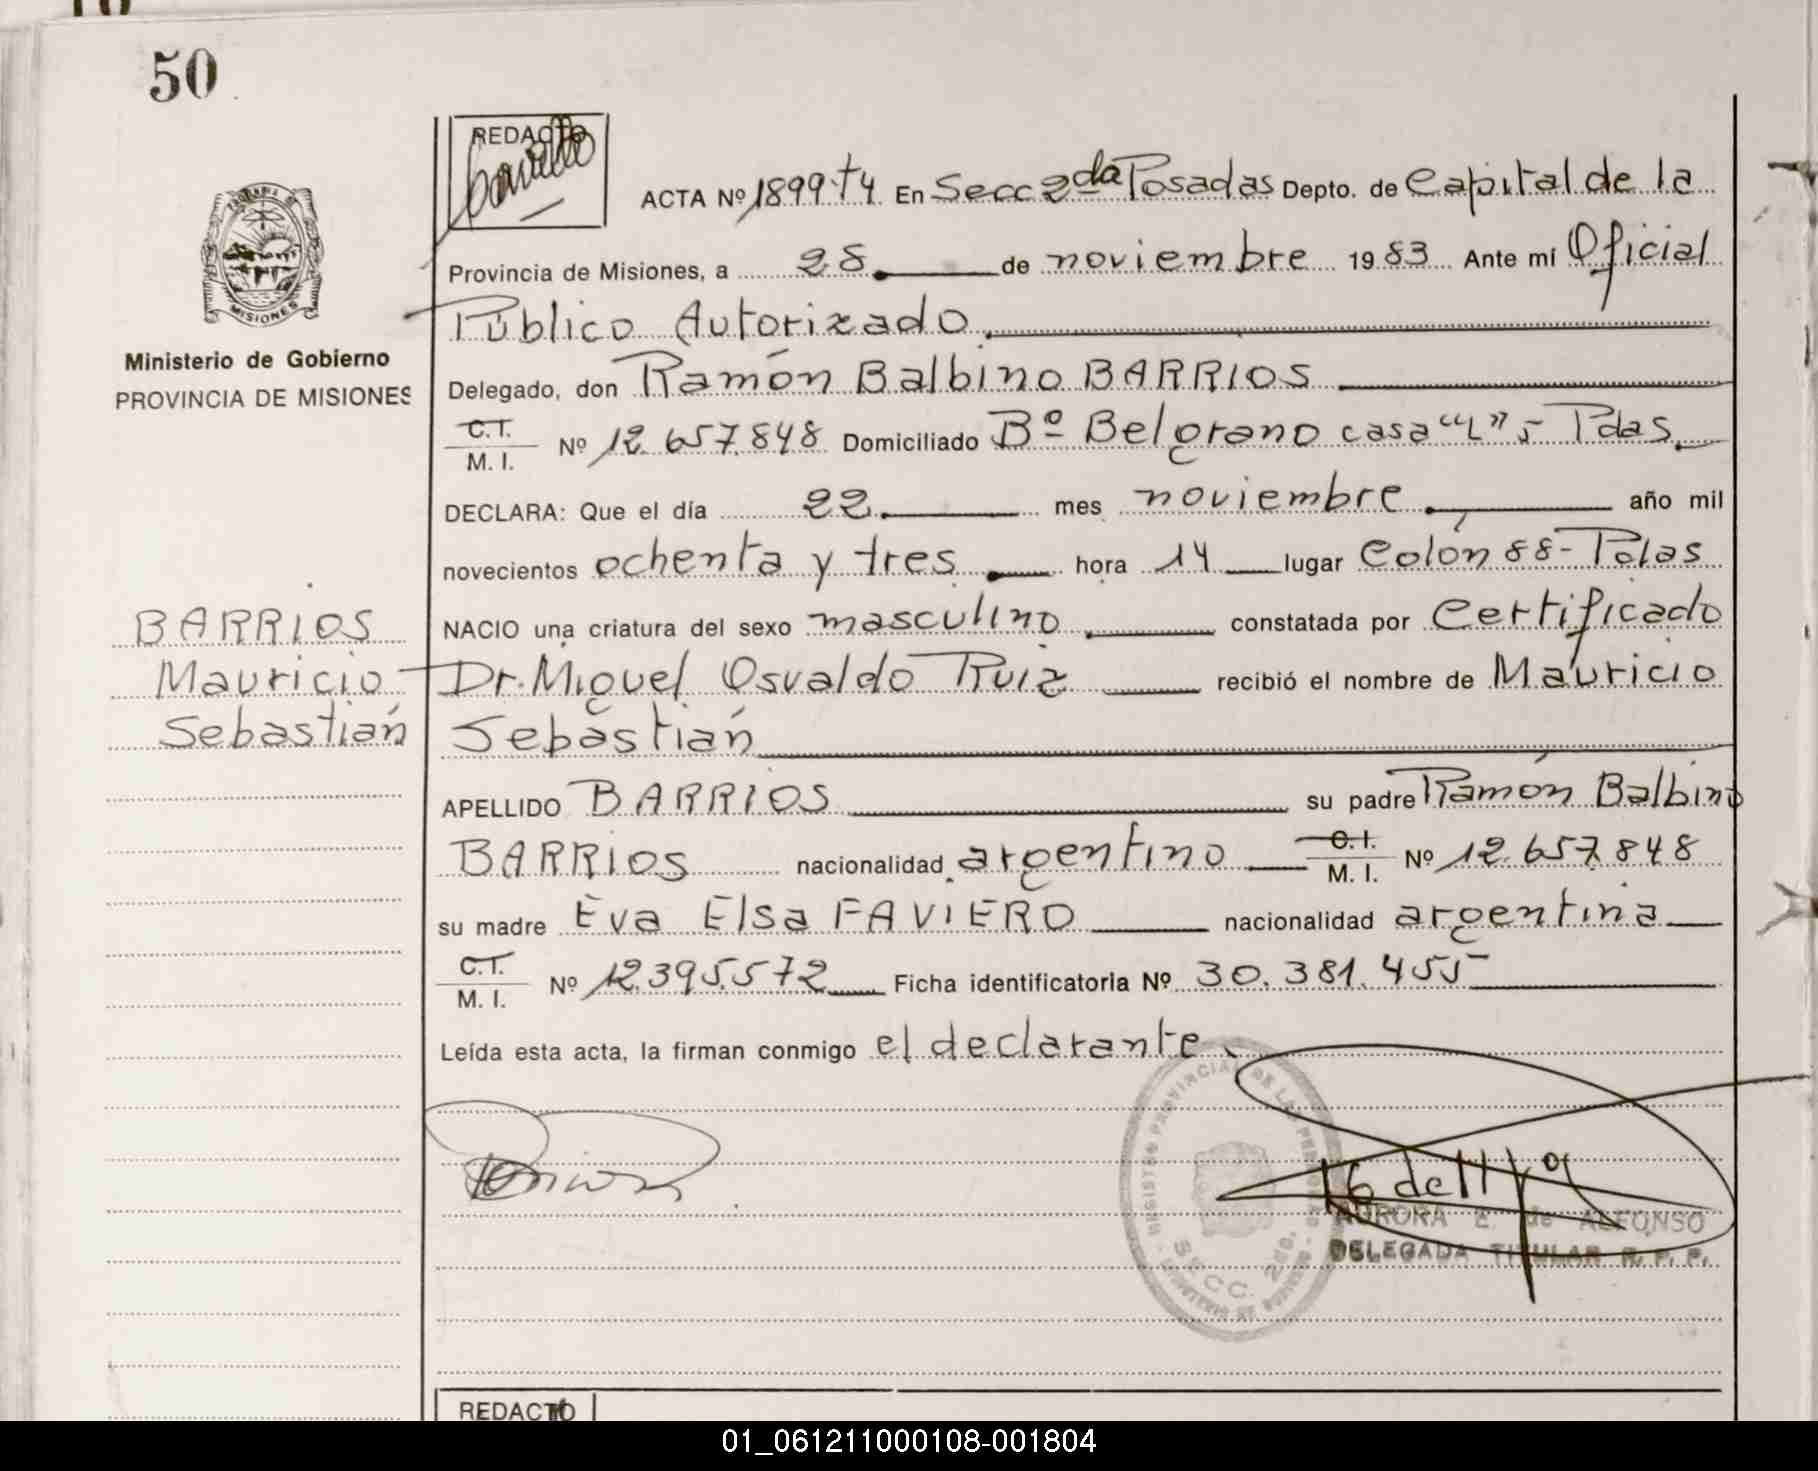 50
REDACTO
ACTA Nº 1899 t4 En Secc 2da Posadas Depto. de Capital de la
Provincia de Misiones, a 28 de noviembre 1983 Ante mí Oficial
Público Autorizado
MISIONES
Ministerio de Gobierno
PROVINCIA DE MISIONES
Delegado, don Ramón Balbino BARRIOS
C.I.
M. I. Nº 12.657.848 Domiciliado Bº Belgrano casa "L" - Pdas.
DECLARA: Que el día 22 mes noviembre año mil
novecientos ochenta y tres hora 14 lugar Colón 88 - Pdas
BARRIOS
NACIO una criatura del sexo masculino constatada por Certificado
Mauricio
Dr. Miguel Osvaldo Ruiz recibió el nombre de Mauricio
Sebastián
Sebastián
APELLIDO BARRIOS su padre Ramón Balbino
BARRIOS nacionalidad argentino C.I.
M. I. Nº 12.657.848
su madre Eva Elsa FAVIERO nacionalidad argentina
C.I.
M. I. Nº 12.395.572 Ficha identificatoria Nº 30.381.455
Leída esta acta, la firman conmigo el declarante.
SECC. 2da.
AURORA E. de ALFONSO
DELEGADA TITULAR R. P. P.
REDACTO
01_061211000108-001804